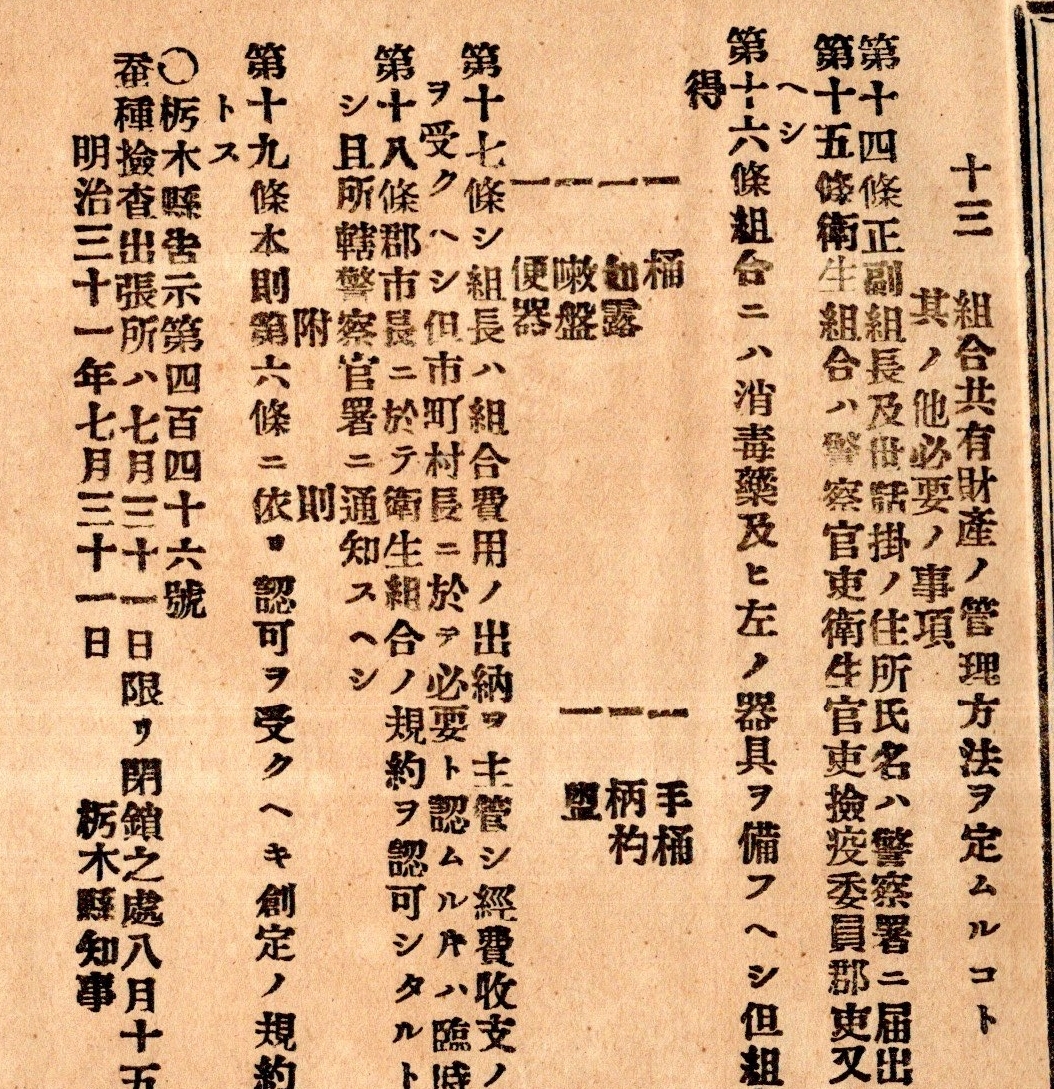 十三　組合共有財產ノ管理方法ヲ定ムルコト
其ノ他必要ノ事項
第十四條正副組長及世話掛ノ住所氏名ハ警察署ニ届出
第十五條衛生組合ハ警察官吏衛生官吏撿疫委員郡吏又
ヘシ
第十六條組合ニハ消毒藥及ヒ左ノ器具ヲ備フヘシ但組
得
一　桶　一　手桶
一　如露　一　柄杓
一　嗽盤　一　盥
一　便器
第十七條シ組長ハ組合費用ノ出納ヲ主管シ經費收支ノ
ヲ受クヘシ但市町村長ニ於テ必要ト認ムル片ハ臨時
第十八條郡市長ニ於テ衛生組合ノ規約ヲ認可シタルト
シ且所轄警察官署ニ通知スヘシ
附　則
第十九條本則第六條ニ依ヨ認可ヲ受クヘキ創定ノ規約
トス
〇栃木縣告示第四百四十六號
蚕種撿査出張所ハ七月三十一日限リ閉鎖之處八月十五
明治三十一年七月三十一日　栃木縣知事